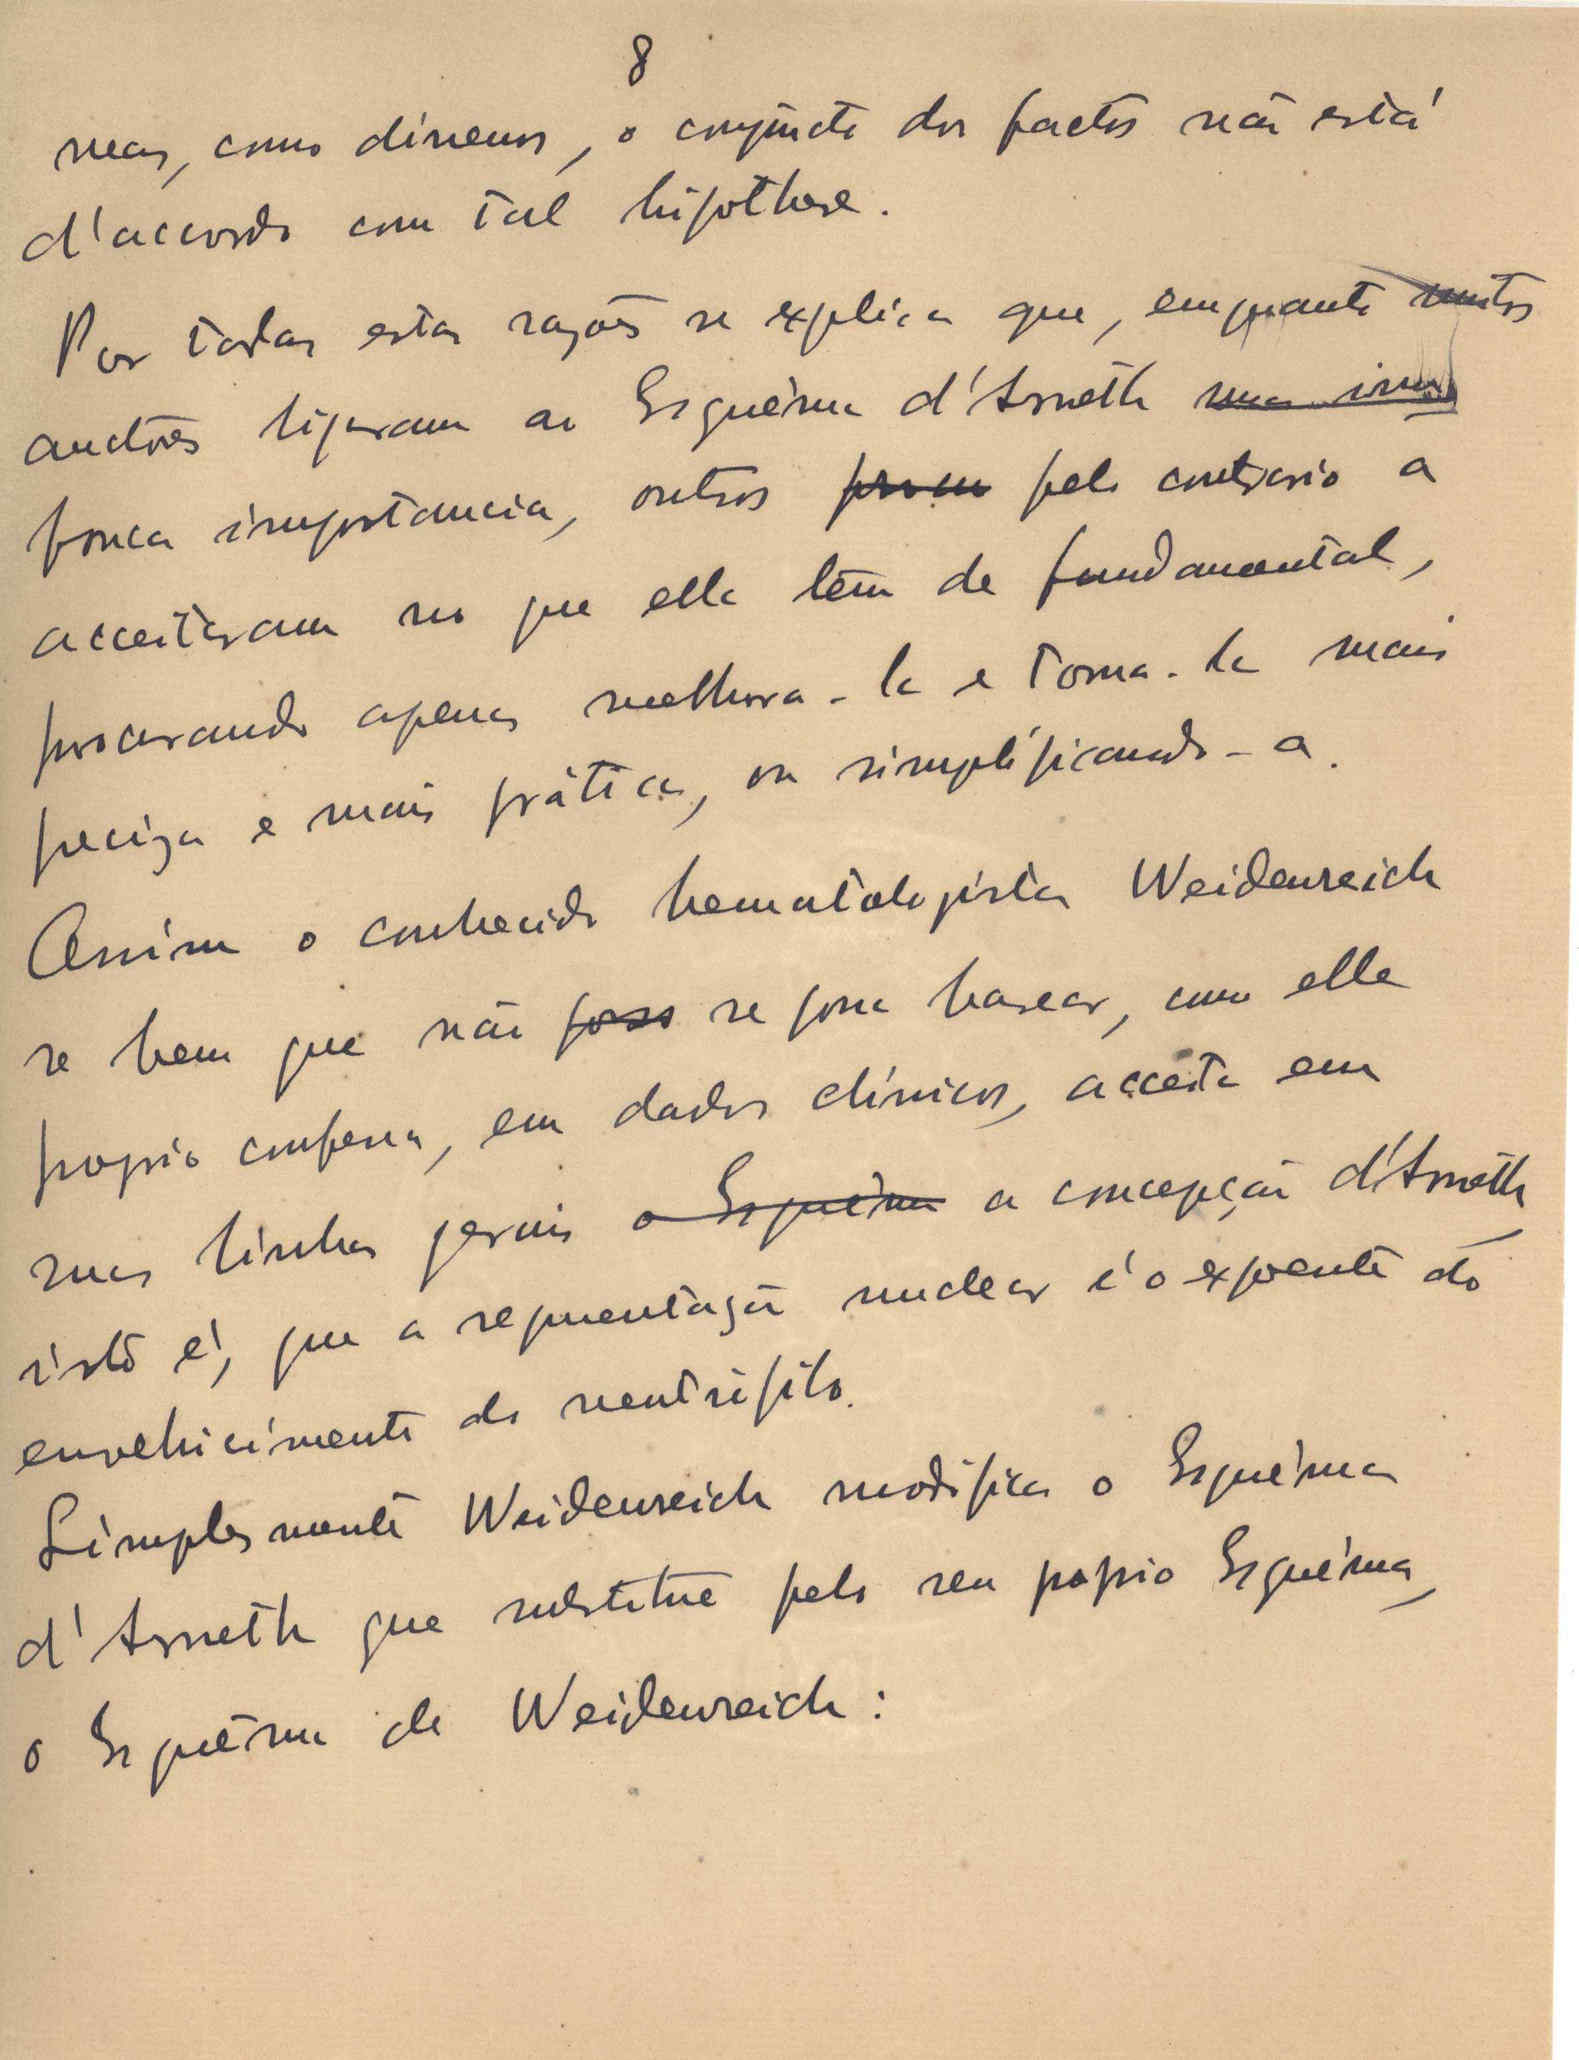 8
mas, como dissemos, o conjuncto dos factos não está
d'accordo com tal hipothese.
Por todas estas razões se explica que, emquanto muitos
auctores ligaram ao Esquêma d'Arneth uma
pouca importancia, outros pelo contrario a
acceitaram no que ella têm de fundamental,
procurando apenas melhora-la e torna-la mais
preciza e mais prática, ou simplificando-a.
Assim o conhecido hematologista Weidenreich
se bem que não posso se possa basear, como elle
proprio confessa, em dados clínicos, acceita em
suas linhas geraes o Esquêma a concepção d'Arneth,
isto é, que a segmentação nuclear é o expoente do
envelhicimento do neutrófilo.
Simplesmente Weidenreich modifica o Esquêma
d'Arneth que substitue pelo seu proprio Esquêma,
o Esquêma de Weidenreich: